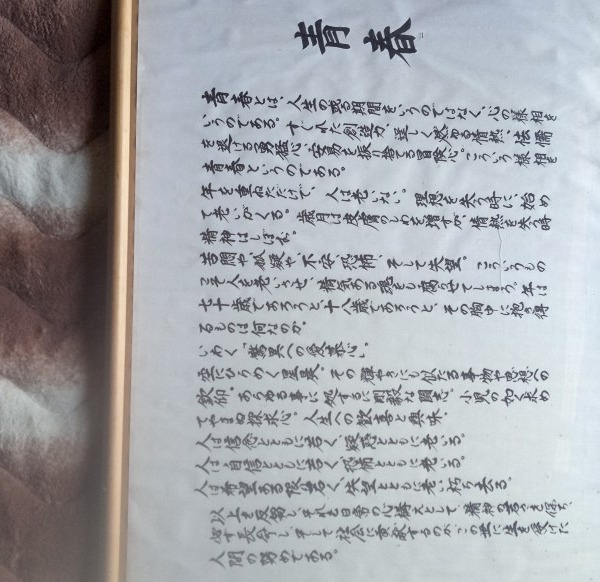 青春
青春とは、人生の或る期間をいうのではなく、心の様相を
いうのである。すぐれた創造力、逞しく燃ゆる情熱、怯懦
を退ける勇猛心、安易を振り捨てる冒険心。こういう様相を
青春というのである。
年を重ねただけで、人は老いない。理想を失う時に、始め
て老いがくる。歳月は皮膚のしわを増すが、情熱を失う時
精神はしぼむ。
苦悶や、狐疑や、不安、恐怖、そして失望。こういうもの
こそ人を老いさせ、精気ある魂をも腐らせてしまう。年は
七十歳であろうと、十八歳であろうと、その胸中に抱き得
るものは何なのか。
いわく「驚異への愛慕心」。
空にひらめく星晨。その輝やきにも似たる事物や思想への
欽仰。あらゆる事に処する剛毅な闘志。小児の如く求め
てやまぬ探求心。人生への歓喜と興味。
人は信念とともに若く、疑惑とともに老いる。
人は、自信とともに若く、恐怖とともに老いる。
人は希望ある限り若く、失望とともに老い朽ち去る。
以上を反芻し、それを日常の心構えとして、精神の若さを保ち、
して社会に貢献するのが、この世に生を受けた
人間の努めである。